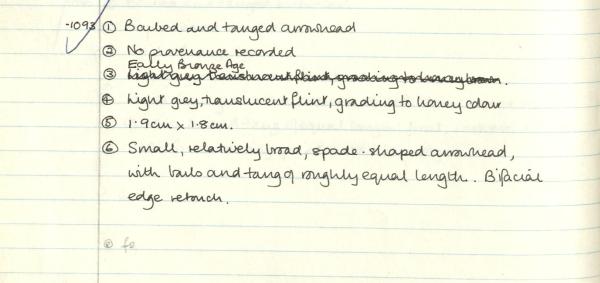 -1093 ① Barbed and tanged arrowhead
② No provenance recorded
Early Bronze Age
③ Light grey translucent flint, grading to honey brown.
④ Light grey, translucent flint, grading to honey colour
⑤ 1.9cm x 1.8cm.
⑥ Small, relatively broad, spade-shaped arrowhead,
with barbs and tang of roughly equal length. Bifacial
edge retouch.
② fe